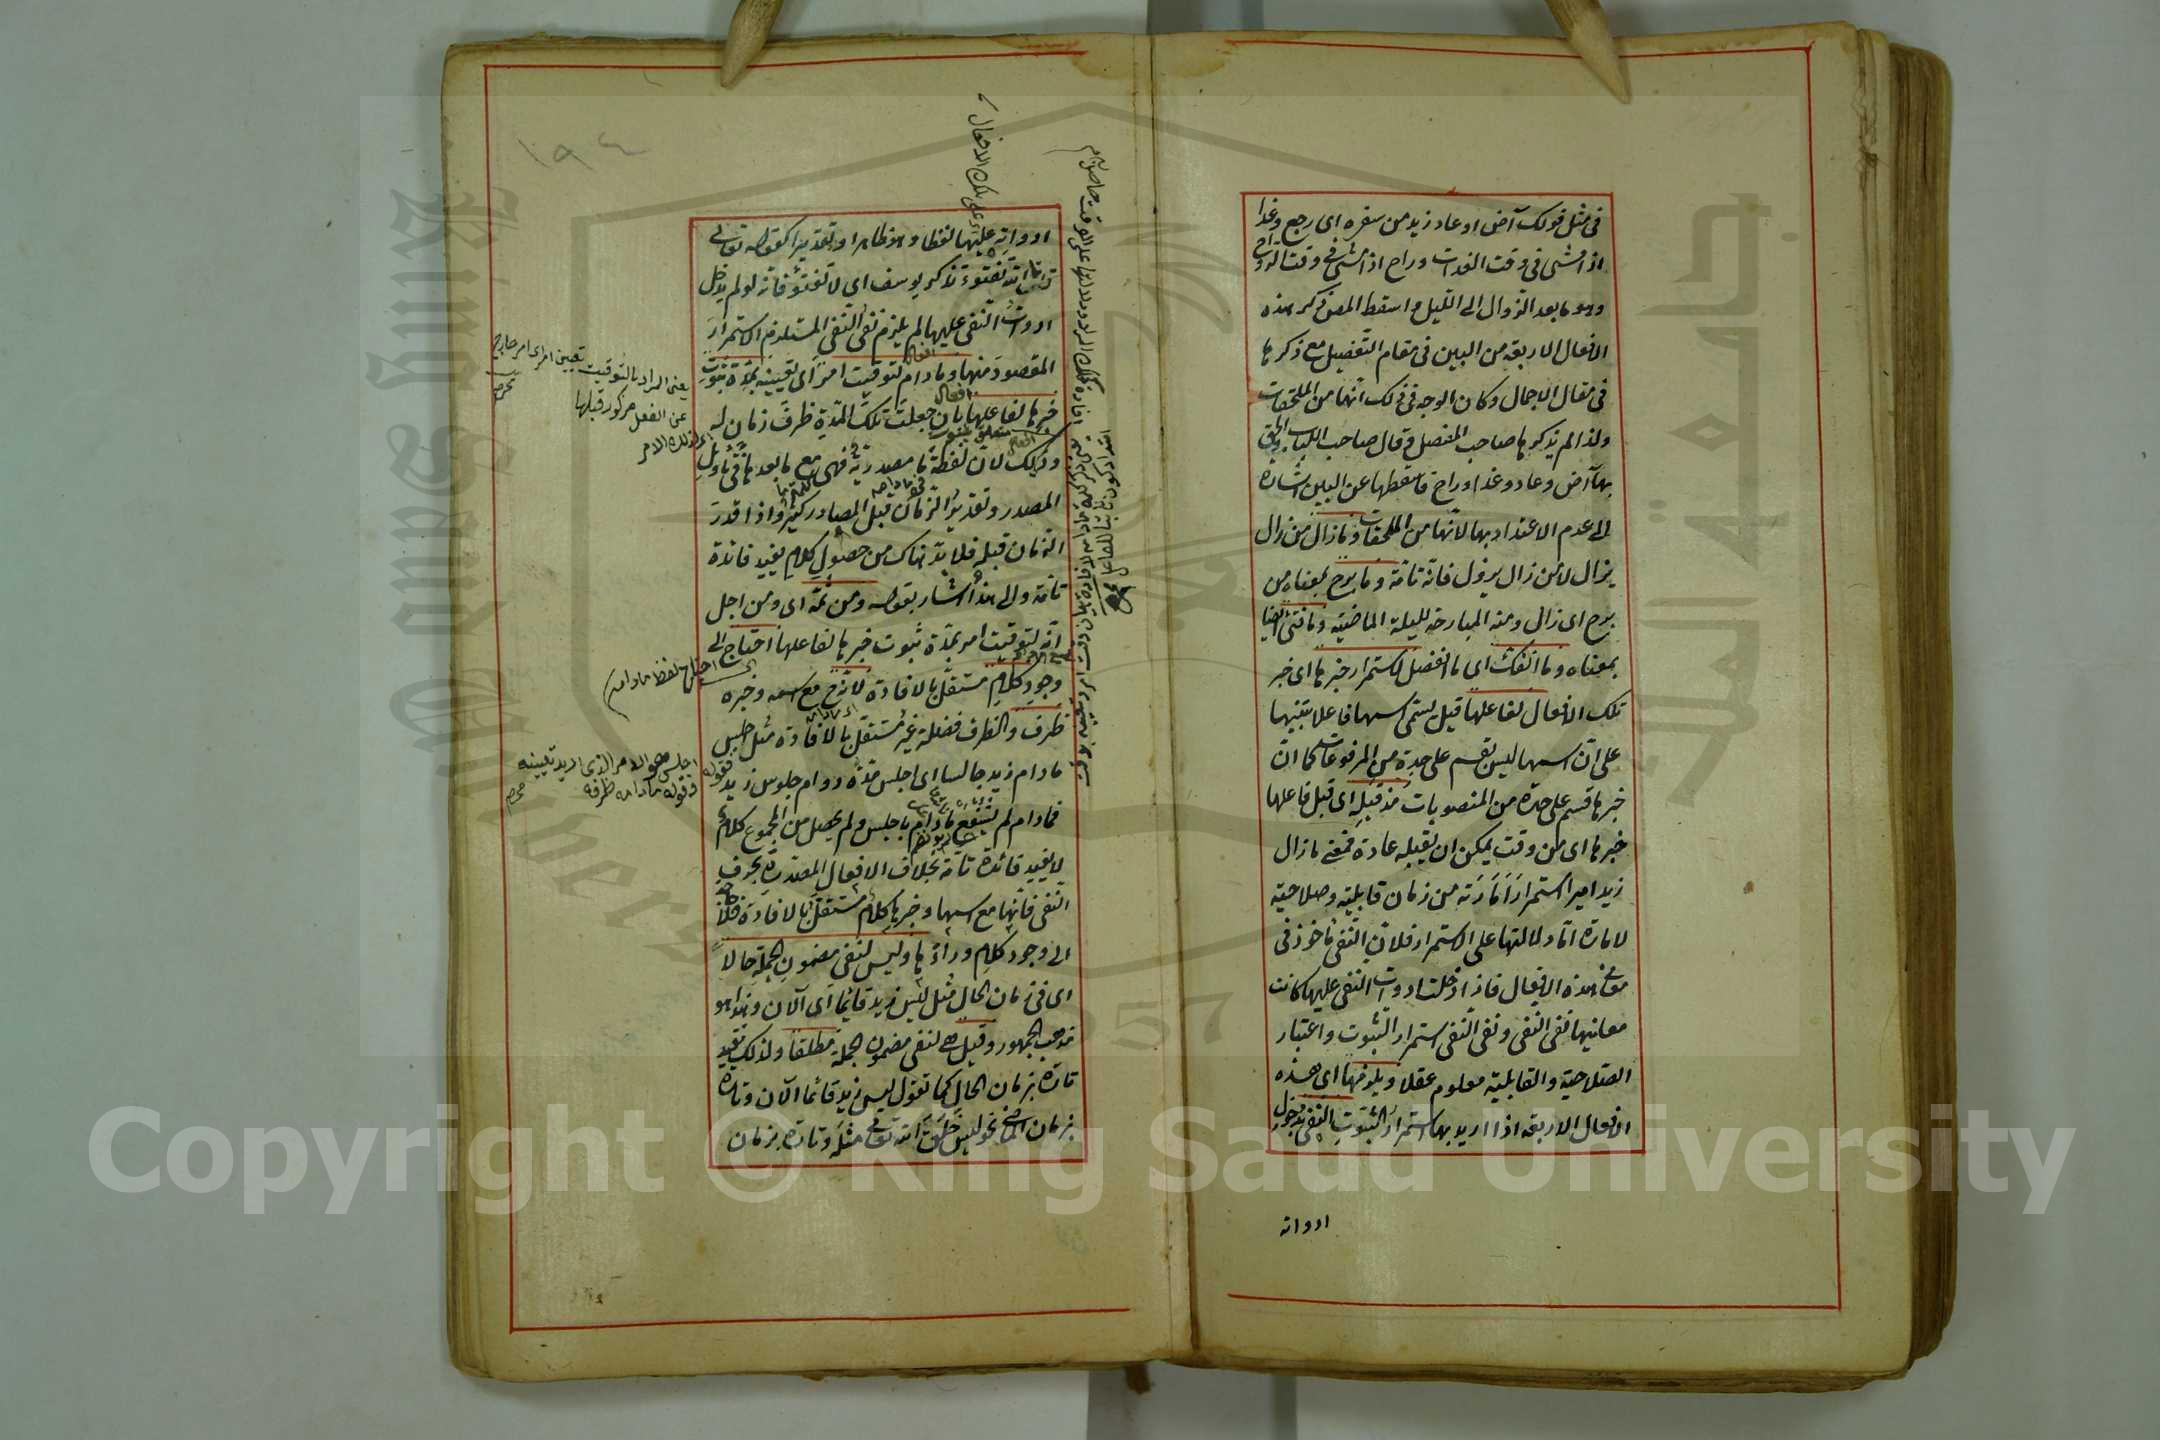 في مثل قولك آض او عاد زيد من سفره اى رجع وغدا
اذا مشى في وقت الغداة وراح اذا مشى في وقت الرواح
وهو ما بعد الزوال الى الليل واسقط المص ذكر هذه
الافعال الاربعة من البين في مقام التفصيل مع ذكرها
في مقال الاجمال وكان الوجه في ذلك انها من الملحقات
ولذا لم يذكرها صاحب المفصل وقال صاحب اللباب والحق
بها آض وعاد وغدا وراح فاسقطها عن البين اشارة
الى عدم الاعتداد بها لانها من الملحقات وما زال من زال
يزال لا من زال يزول فانه تامة وما برح بمعناه من
برح اى زال ومنه البارحة لليلة الماضية وما فتئ ايضا
بمعناه وما انفك اى ما انفصل لاستمرار خبرها اى خبر
تلك الافعال لفاعلها قيل يسمى اسمها فاعلا تنبيها
على ان اسمها ليس بقسم على حدة من المرفوعات كما ان
خبرها قسم على حدة من المنصوبات مذ قبله اى قبل فاعلها
خبرها اى من وقت يمكن ان يقبله عادة فمعنى ما زال
زيد اميرا استمرار امارته من زمان قابليته وصلاحيته
للامارة اما دلالتها على الاستمرار فلان النفى مأخوذ فى
معانى هذه الافعال فاذا دخلت ادوات النفى عليها كانت
معانيها نفى النفى ونفى النفى استمرار الثبوت واعتبار
الصلاحية والقابلية معلوم عقلا ويلزمها اى هذه
الافعال الاربعة اذا اريد بها استمرار الثبوت النفى بدخول
ادواته
١٩٤
ادواته عليها لفظا وهو ظاهر او تقديرا كقوله تعالى
تالله تفتؤ تذكر يوسف اى لا تفتؤ فانه لو لم يدخل
ادوات النفى عليها لم يلزم نفى النفى المستلزم الاستمرار
المقصود منها وما دام لتوقيت امر اى تعيينه بمدة ثبوت
خبرها لفاعلها بان جعلت تلك المدة ظرف زمان له
وذلك لان لفظة ما مصدرية فهى مع ما بعدها في تأويل
المصدر وتقدير الزمان قبل المصادر كثير واذا قدر
الزمان قبله فلا بد هناك من حصول كلام يفيد فائدة
تامة والى هذا اشار بقوله ومن ثمة اى ومن اجل
انه لتوقيت امر بمدة ثبوت خبرها لفاعلها احتاج الى
وجود كلام مستقل بالافادة لانه مع اسمه وخبره
ظرف والظرف فضلة غير مستقل بالافادة مثل اجلس
ما دام زيد جالسا اى اجلس مدة دوام جلوس زيد
فما دام لم يشفع ما دام باجلس ولم يحصل من المجموع كلام
لا يفيد فائدة تامة بخلاف الافعال المصدرة بحرف
النفى فانها مع اسمها وخبرها كلام مستقل بالافادة فلا
الى وجود كلام وراءها وليس لنفى مضمون الجملة حالا
اى في زمان الحال مثل ليس زيد قائما اى الآن وهذا هو
مذهب الجمهور وقيل هى لنفى مضمون الجملة مطلقا ولذلك تقيد
تارة بزمان الحال كما تقول ليس زيد قائما الآن وتارة
بزمان الماضى نحو ليس خلق الله تعالى مثله وتارة بزمان
يعنى المراد بالتوقيت تعيين امر اى امر خارج
عن الفعل مذكور قبلها
اى لذلك الامر
اى احتاج لفظ ما دام
فقوله اجلس هو الامر الذى اريد تعيينه
وقوله ما دام ظرفه
Copyright © King Saud University
King Saud University
1957